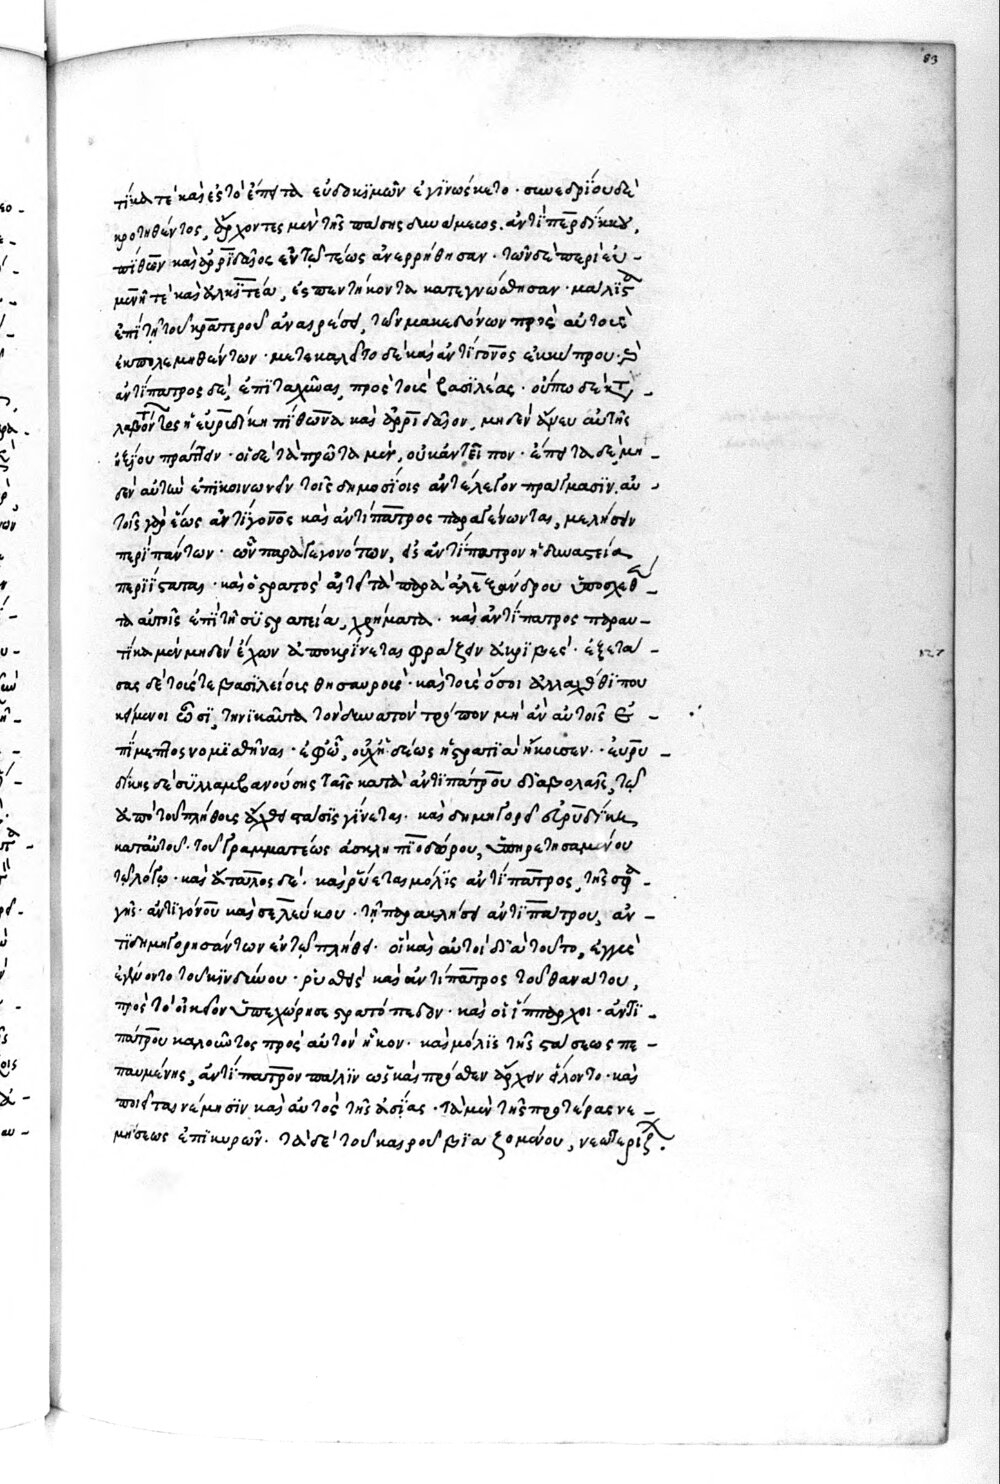 τίκα τὲ καὶ ἐς τὸ ἔπειτα εὐδοκιμῶν ἐγινώσκετο · συνεδρίου δὲ
κροτηθέντος, ἄρχοντες μὲν τῆς πάσης δυνάμεως. ἀντὶ περδίκκου,
πίθων καὶ ἀρριδαῖος ἐν τῷ τέως ἀνερρήθησαν · τῶν δὲ περὶ εὐ -
μένη τὲ καὶ ἀλκέταν, ἐς πεντήκοντα κατεγνώσθησαν · μάλιστα
ἐπὶ τῇ τοῦ κρατεροῦ ἀναιρέσει, τῶν μακεδόνων πρὸς αὐτοὺς
ἐκπολεμηθέντων · μετεκαλεῖτο δὲ καὶ ἀντίγονος ἐκ κύπρου · καὶ
ἀντίπατρος δὲ, ἐπιταχῦναι, πρὸς τοὺς βασιλέας · οὔπω δὲ κατα
λαβόντος ἡ εὐρυδίκη πίθωνα καὶ ἀρριδαῖον, μηδὲν ἄνευ αὐτῆς
ἠξίου πράττειν · οἱ δὲ τὰ πρῶτα μὲν, οὐκ ἀντεῖπον · ἔπειτα δὲ, μη -
δὲν αὐτὴν ἐπικοινωνεῖν τοῖς δημοσίοις ἀντέλεγον πράγμασιν. αὐ -
τοῖς γὰρ ἕως ἀντίγονος καὶ ἀντίπατρος παραγένωνται, μελήσειν
περὶ πάντων · ὧν παραγεγονότων, εἰς ἀντίπατρον ἡ δυναστεία
περιίσταται · καὶ ὁ στρατὸς αἰτεῖ τὰ παρὰ ἀλεξάνδρου ὑποσχεθέν
τα αὐτοῖς ἐπὶ τῇ συστρατεία, χρήματα · καὶ ἀντίπατρος παραυ -
τίκα μὲν μηδὲν ἔχων ἀποκρίνεται φράζειν ἀκριβὲς · ἐξετά -
σας δὲ τούς τε βασιλείους θησαυροὺς · καὶ τοὺς ὅσοι ἀλλαχόθι που
κείμενοι ὦσι, τηνικαῦτα τὸν δυνατὸν τρόπον μὴ ἂν αὐτοῖς ἐ -
πίμεμπτος νομισθῆναι · ἐφ' ᾧ, οὐχ ἡδέως ἡ στρατιὰ ἤκουσεν · εὐρυ -
δίκης δὲ συλλαμβανούσης ταῖς κατὰ ἀντιπάτρου διαβολαῖς, τῷ
ἀπὸ τοῦ πλήθους ἄχθει στάσις γίνεται · καὶ δημηγορεῖ εὐρυδίκη
κατ' αὐτοῦ · τοῦ γραμματέως ἀσκληπιοδώρου, ὑπηρετησαμένου
τῷ λόγω · καὶ ἄτταλος δὲ · καὶ ῥύεται μόλις ἀντίπατρος, τῆς σφα -
γῆς · ἀντιγόνου καὶ σελεύκου · τῇ παρακλήσει ἀντιπάτρου, ἀν -
τιδημηγορησάντων ἐν τῷ πλήθει · οἳ καὶ αὐτοὶ διὰ τοῦτο, ἐγγὺς
ἐγένοντο τοῦ κινδύνου · ῥυσθεὶς καὶ ἀντίπατρος τοῦ θανάτου,
πρὸς τὸ οἰκεῖον ὑπεχώρησε στρατόπεδον · καὶ οἱ ἵππαρχοι · ἀντι -
πάτρου καλοῦντος πρὸς αὐτὸν ἧκον · καὶ μόλις τῆς στάσεως πε -
παυμένης, ἀντίπατρον πάλιν ὡς καὶ πρόσθεν ἄρχειν εἵλοντο · καὶ
ποιεῖται νέμησιν καὶ αὐτὸς τῆς ἀσίας · τὰ μὲν τῆς προτέρας νε -
μήσεως ἐπικυρῶν · τὰ δὲ τοῦ καιροῦ βιαζομένου, νεωτερίζων.